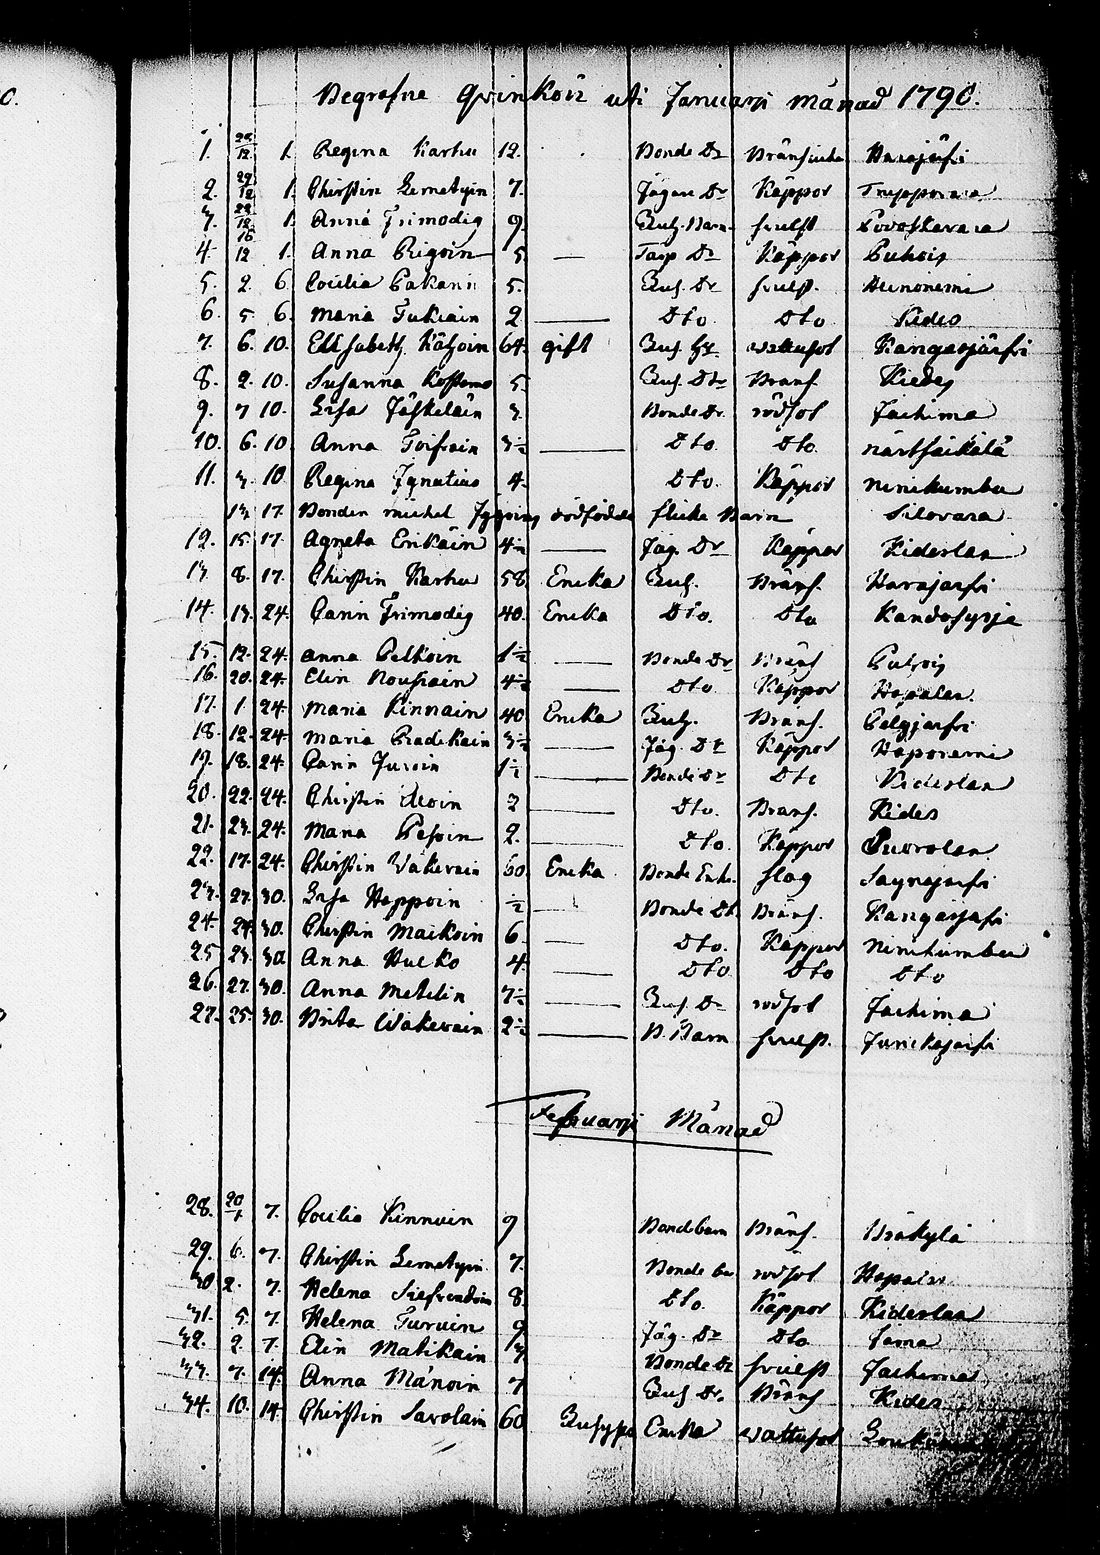 0.
Begrafne qvinkön uti Januarji månad 1790.
1. 29/12 1. Regina Karhu 12. Bonde Dr Brånsiuka Havajärfi
2. 29/12 1. Chirstin Lernetyin 7. Jägar Dr Kåppor
3. 22/12 1. Anna Frimodig 9. Huf. Barn svulst
4. 16/12 1. Anna Rigoin 5 — Torp Dr Kåppor Puhois
5. 2. 6. Cecilia Pakarin 5. Huf. Dr svulst.
6. 5. 6. Maria Tukiain 2 — Dto. Dto. Kides
7. 6. 10. Elisabeth Käyoin 64. gift Huf. Hr wattusot Kangasjärfvi
8. 2. 10. Susanna Kostamo 5. Huf. Dtr Brånf. Kides
9. 7 10. Lisa Jäskeläin 3. Bonde Dr. rödsot Jachima
10. 6. 10. Anna Toifvain 3½ — Dto. Dto. närtsäikälä
11. 3. 10 Regina Jgnatius 4. Dto. Kåppor ninikumbu
13. 17. Bonden michel dödfödde flicke Barn Silovara
12. 15. 17. Agneta Erikäin 4½ — Jäg. Dr Kåppor Kiderlan
13. 8. 17. Chirstin Karhu 58 Encka Huf. Brånf. Havajärfi
14. 13. 24. Carin Frimodig 40. Encka Dto. Dto Kandosyrja
15. 12. 24. Anna Pelkoin 1½ — Bonde Dr Brånf Puhois
16. 20. 24. Elin Roussain 4½ — Dto Kåppor Hapalax
17. 1. 24. Maria Kinnain 40 Encka Huf. Brånf. Pelgjarfi
18. 12. 24. Maria Radikain 3½ — Jäg. Dt Kåppor Haponiemi
19. 18. 24. Carin Juvoin 1½ — Bonde Dr Dto Kiderlan
20. 22. 24. Chirstin 2 — Dto. Brånf. Kides
21. 23. 24. Maria Pesoin 2. — Dto. Kåppor Puorolax
22. 17. 24. Chirstin Wäkevain 60. Encka Bonde Enk. slag Saynejarfi
23. 27. 30. Lisa Hoppoin ½ — Bonde Dt. Brånf. Kangasjarfi
24. 24. 30. Chirstin Maikoin 6. — Dto. Kåppor Ninikumbu
25 23. 30. Anna Hucko 4. — Dto Dto Dto
26. 27. 30. Anna Metelin 7½ — Huf. Dr rödsot Jachima
27. 25. 30. Brita Wäkevain 2½ — B. Barn svulst. Jurickajarfi
Februarji Månad
28. 20/1 7. Cecilia Kinnuin 9 Bondebarn Brånf. Bräkylä
29. 6. 7. Chirstin Lernetyin 7. Bonde ba rödsot Hapalax
30 2. 7. Helena 8. Dto. Kåppor Kiderlan
31. 5. 7. Helena Turuin 9 Jäg. Dr Dto. Jama
32. 2. 7. Elin Matikain 3 Bonde Dr svulst Jachima
33. 7. 14. Anna Mänoin 7 Huf Dr. Brånf Kides
34. 10. 14. Chirstin Savolain 60 Encka wattusot